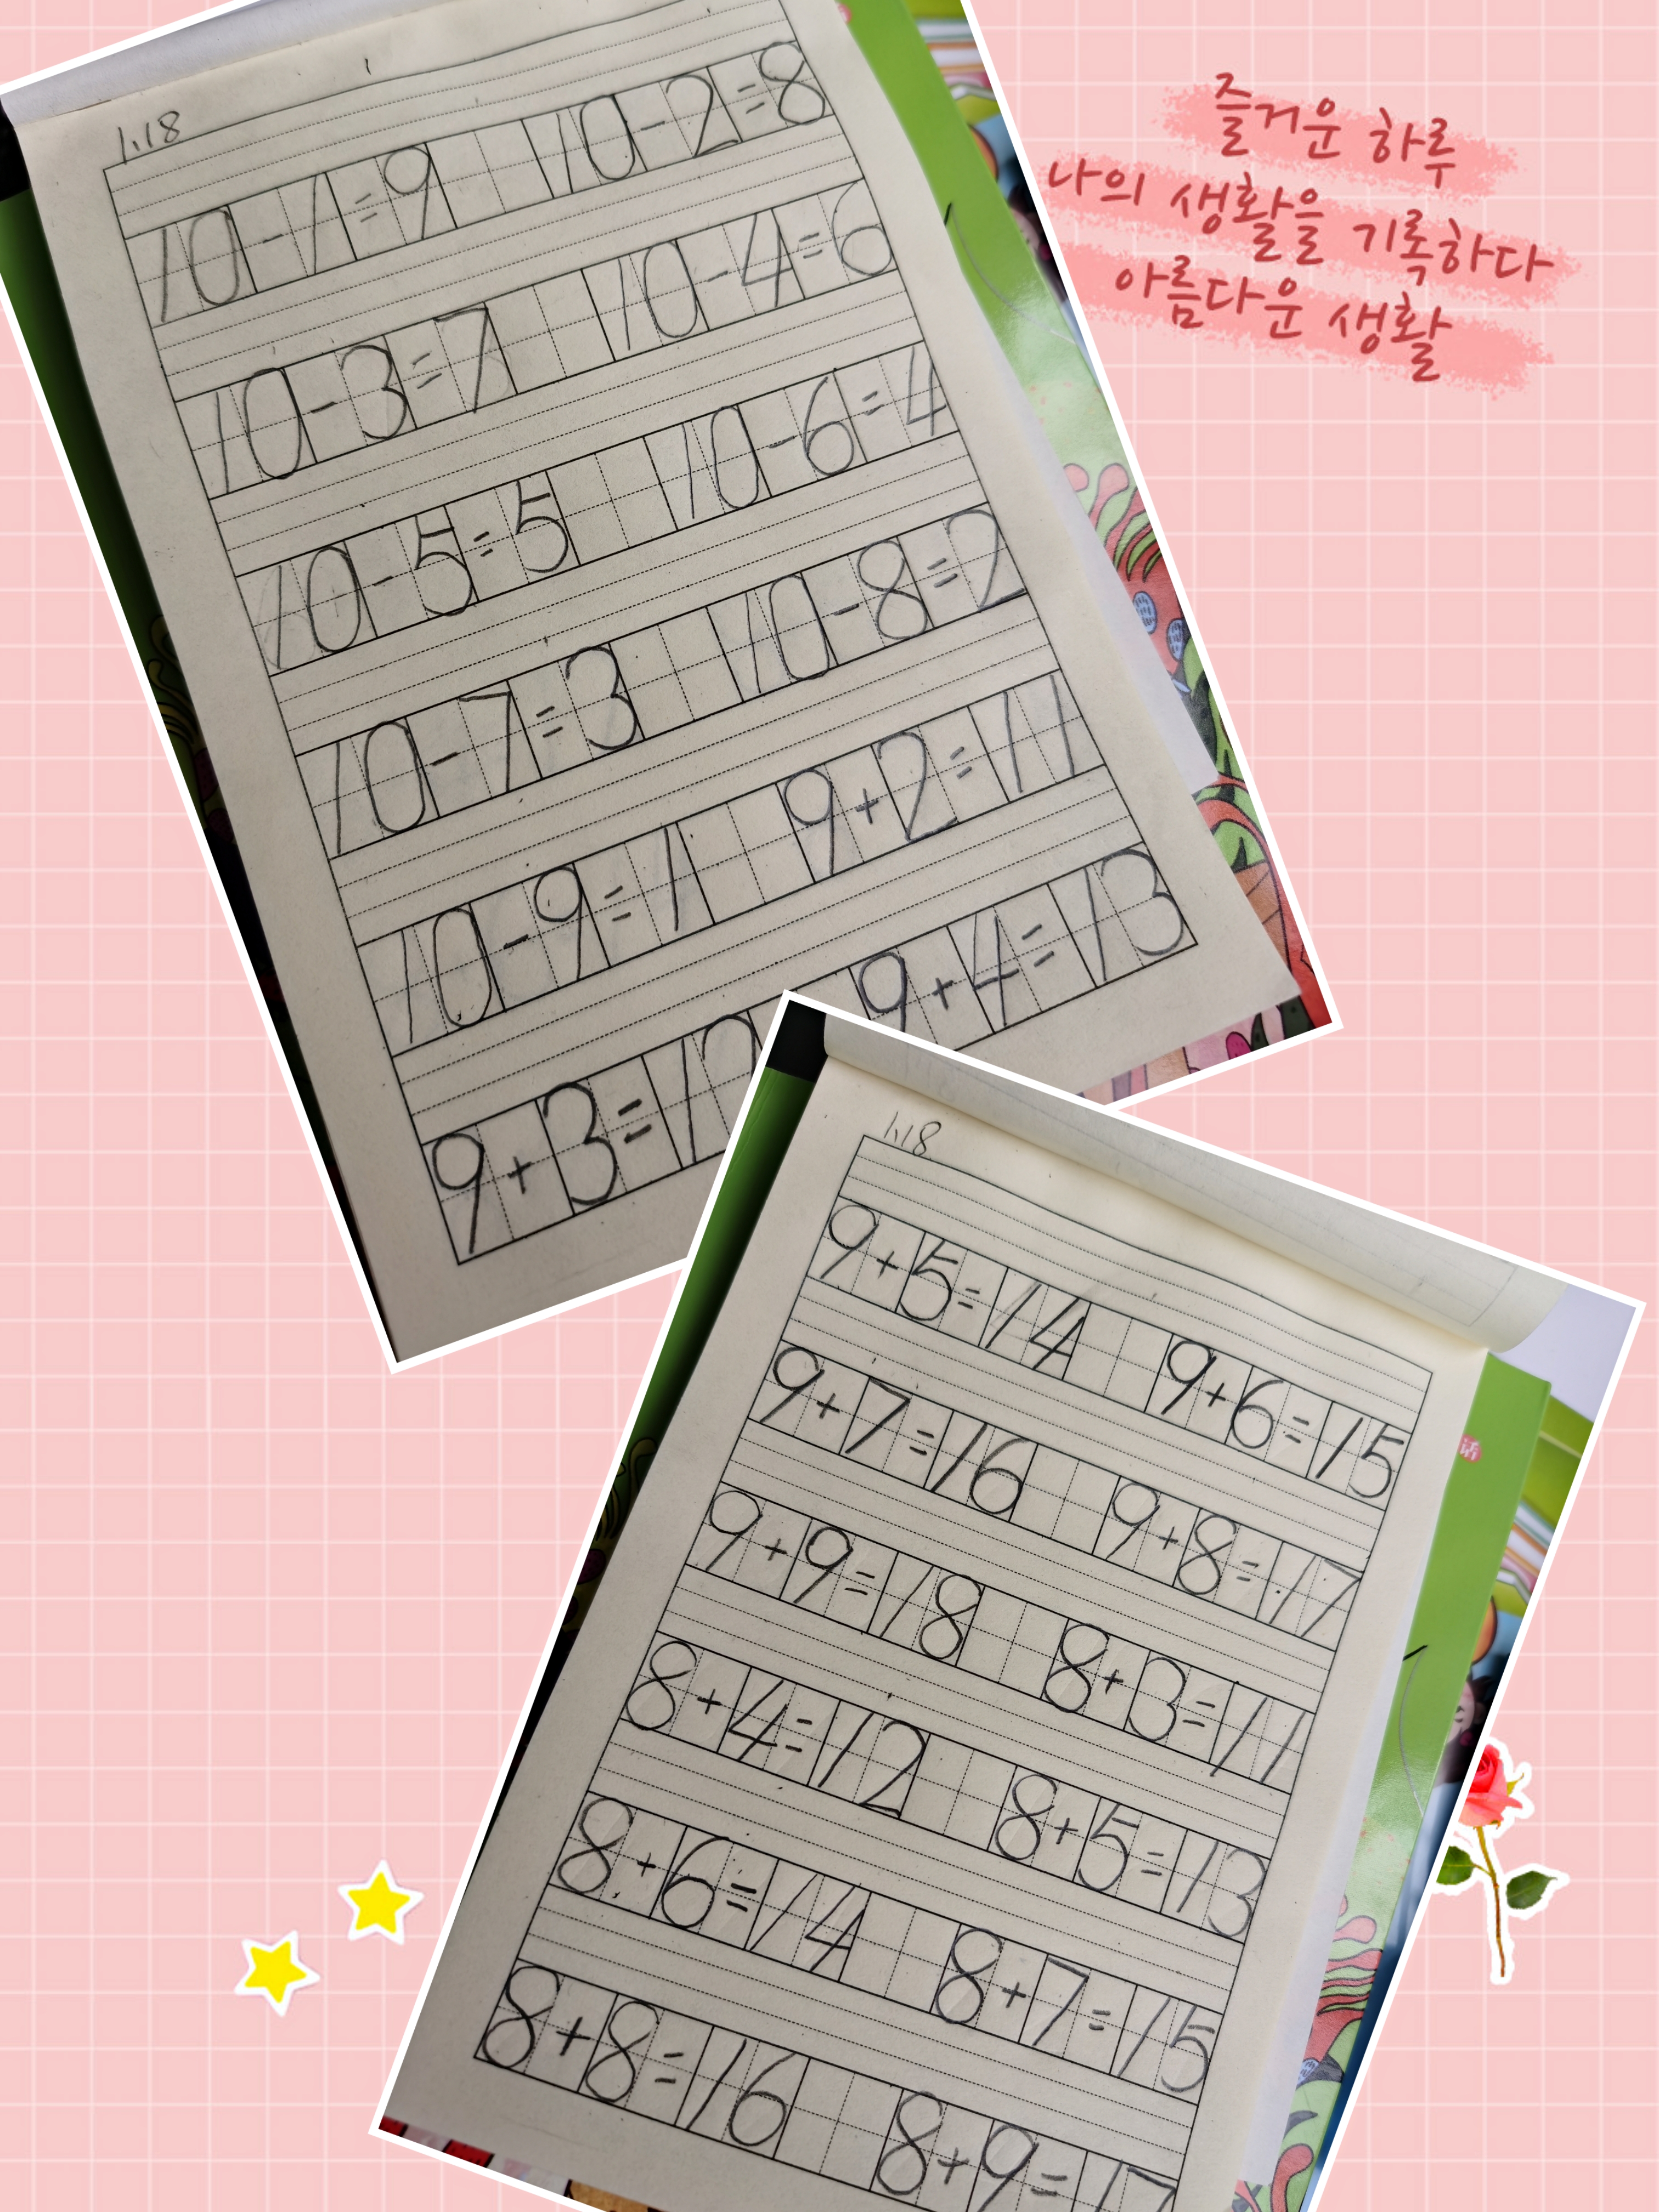 즐거운 하루
나의 생활을 기록하다
아름다운 생활
1.18
10-1=9 10-2=8
10-3=7 10-4=6
10-5=5 10-6=4
10-7=3 10-8=2
10-9=1 9+2=11
9+3=12 9+4=13
1.18
9+5=14 9+6=15
9+7=16 9+8=17
9+9=18 8+3=11
8+4=12 8+5=13
8+6=14 8+7=15
8+8=16 8+9=17
话